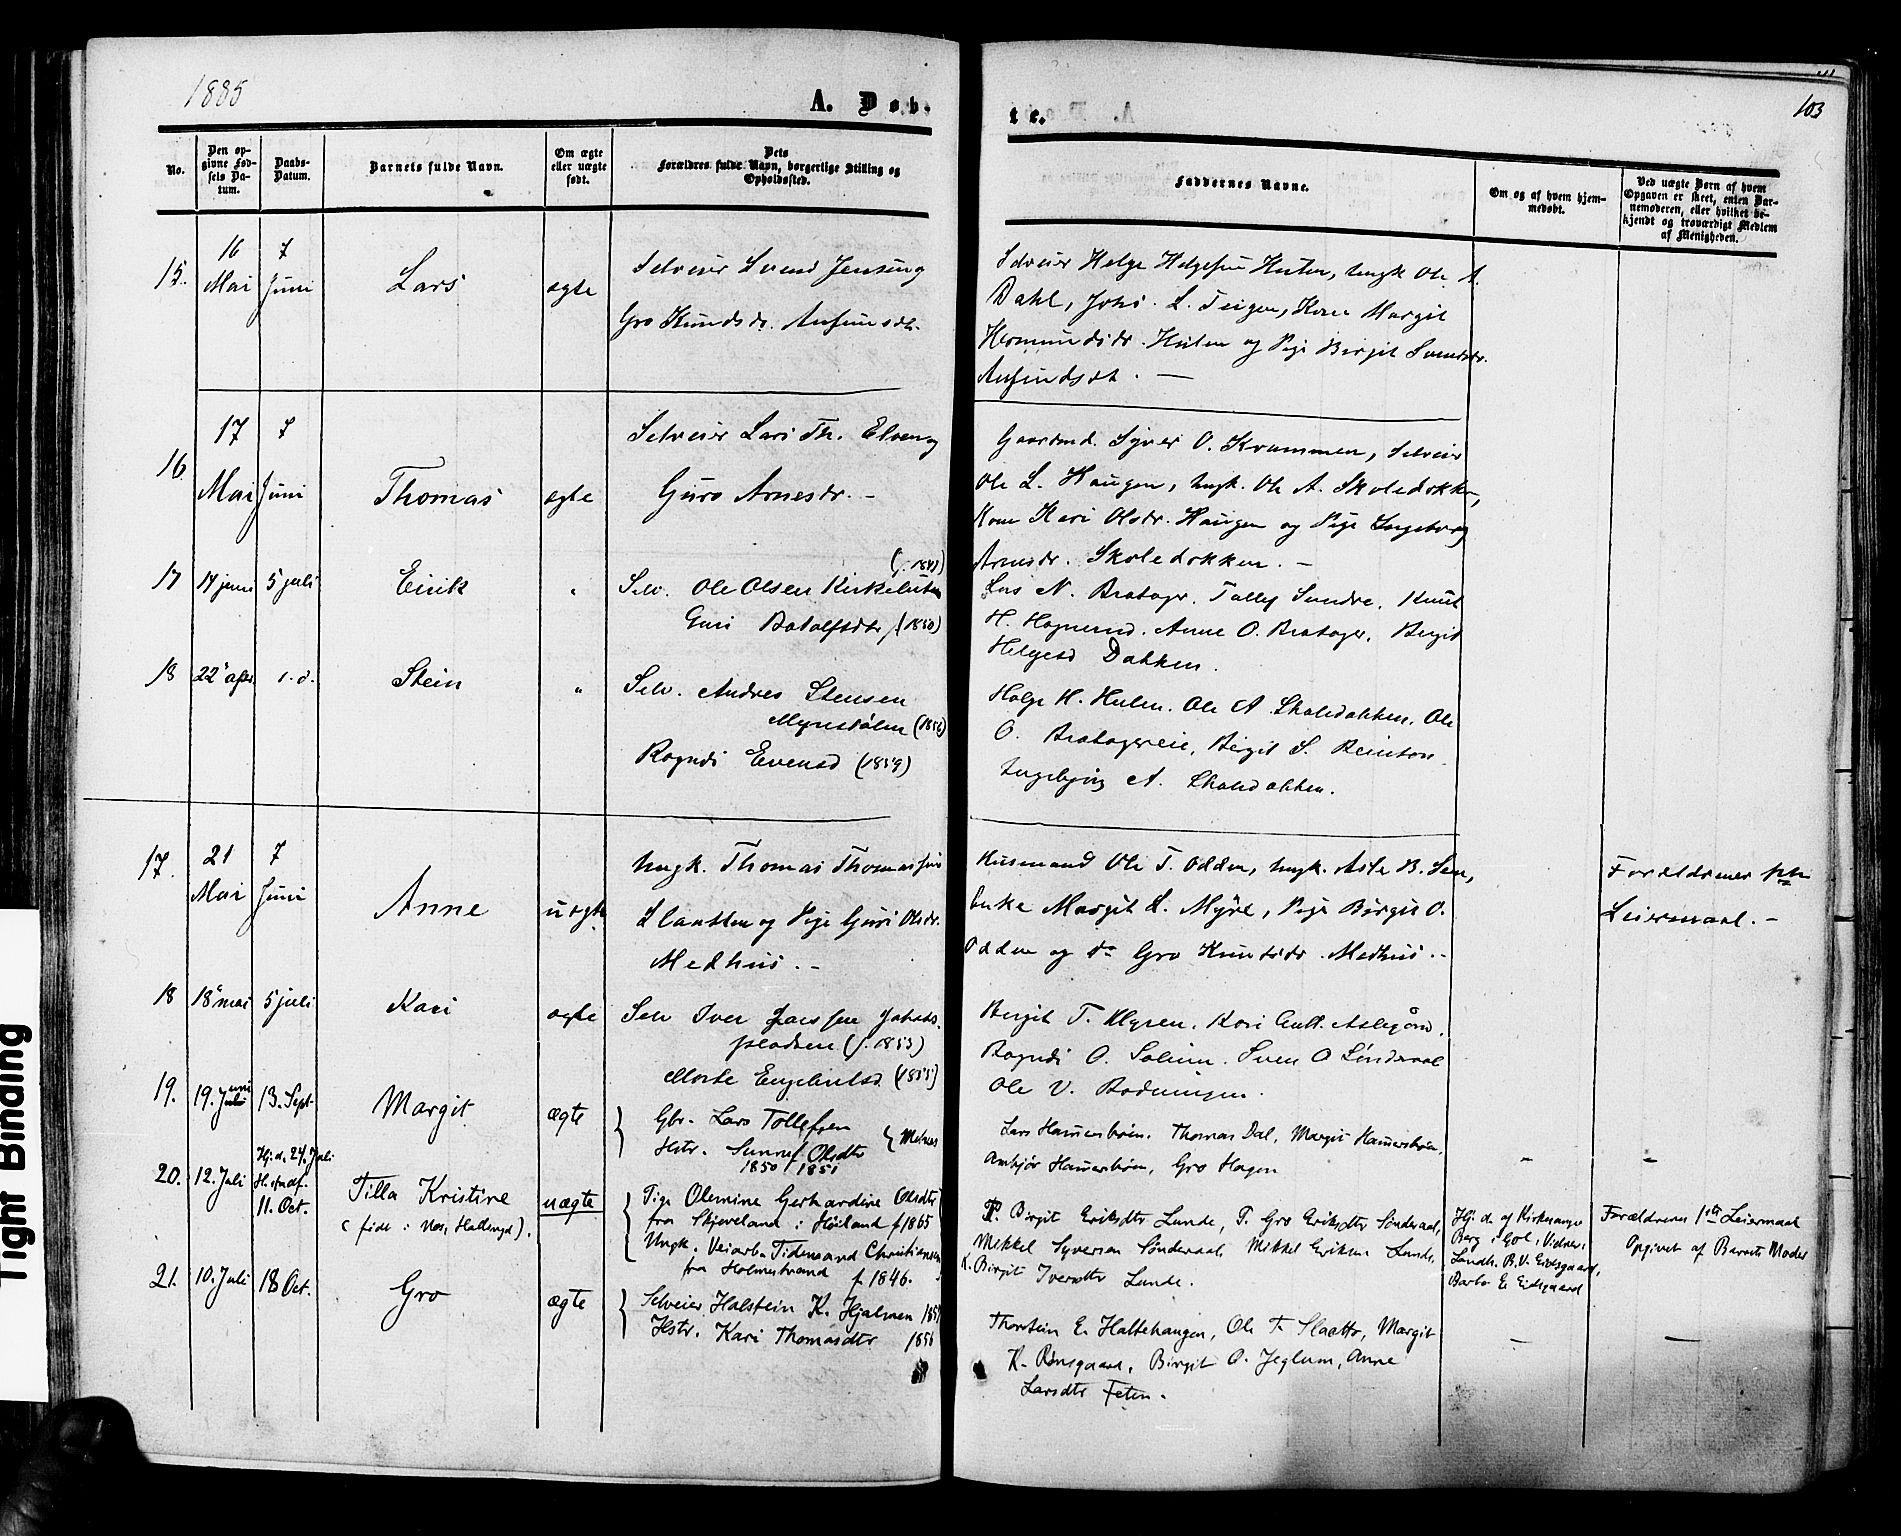 1885
A. Døb-
te.
103
No.
Den op-
givne Fød-
sels Da-
tum.
Daabs-
Datum.
Barnets fulde Navn.
Om ægte
eller uægte
født.
Dets
Forældres fulde Navn, borgerlige Stilling og
Opholdssted.
Faddernes Navne.
Om og af hvem hjem-
medøbt.
Ved uægte Børn af hvem
Opgaven er skeet, enten Bar-
nemoderen, eller hvilket be-
kjendt og troværdigt Medlem
af Menigheden.
15.
16
Mai
7
Juni
Lars
ægte
Selveier Svend Jensen og
Gro Knudsdr.
Selveier Helge Helgesen Hulen, Ungk. Ole A.
Dahl, Johs. L. Teigen, Kone Margit
Hermundsdr. Hulen og Pige Birgit Svendsdr.
16
17
Mai
7
Juni
Thomas
ægte
Selveier Lars Th. Elven og
Guro Arnesdr. -
Gaardmd. Syver O. Kvammen, Selveier
Ole L. Haugen, Ungk. Ole A. Skoledokken,
Kone Kari Olsdr. Haugen og Pige Ingeborg
Arnesdr. Skoledokken. -
17
14 juni
5 juli
Eirik
"
Selv. Ole Olsen
Guri Botolfsdtr (1850)
Lars N. Bratager. Tolley Sundre. Knut
H. Hagnerud. Anne O. Bratager. Birgit
Helgesd Dokken.
18
22 apr.
s. d.
Stein
"
Selv. Andres Stensen
Myrestølen (1856)
Rogndi Evensd (1859)
Helge H. Hulen. Ole A. Skoledokken. Ole
O. Bratagereie, Birgit S. Reinton.
Ingebjørg A. Skoledokken.
17.
21
Mai
7
Juni
Anne
uægte
Ungk. Thomas Thomassen
og Pige Guri Olsdr.
Medhus. -
Husmand Ole T. Odden, Ungk. Asle B. Sen,
Margit L. Myre, Pige Birgit O.
Odden og do Gro Knudsdr. Medhus. -
Forældrenes
Leiermaal. -
18
18 mai
5 juli
Kari
ægte
Selv Iver Larssen
pladsen (f. 1853)
Marte Engebretsd. (1855)
Birgit T. Myren. Kari Gutt.
Rogndi O. Solheim. Sven O Sønderaal
Ole V. Rodningen.
19.
19. Juni
13. Sept.
Margit
ægte
Gbr. Lars Tollefsen
Hstr. Sunnuf Olsdtr
1850 / 1851
Lars Hamersbøen. Thomas Dal, Margit Hamersbøen,
Ambjør Hamersbøen, Gro Hagen
-
-
20.
12. Juli
Hj. d. 24. Juli
11. Oct.
Tilla Kristine
(født i Nes, Hallingd).
uægte
Pige Olemine Gerhardine Olsdtr
fra Skjeveland i Høiland f 1865
Ungk. Veiarb. Tidemand Christiansen
fra Holmestrand f. 1846.
P. Birgit Eriksdtr Lunde, P. Gro Eriksdtr Sønderaal,
Mikkel Syversen Sønderaal, Mikkel Eriksen Lunde,
K. Birgit Iversdtr Lunde.
Hj. d. af Kirkesanger
Berg i Gol, Vidner:
Landh. B. V. Eidsgaard,
Barbo E. Eidsgaard
Forældrenes 1ste Leiermaal
Opgivet af Barnets Moder
21.
10. Juli
18 Oct.
Gro
ægte
Selveier Halstein K. Hjalmen
Hstr. Kari Thomasdtr 1856
Thorstein E. Haltehaugen, Ole T. Slaatto, Margit
K. Rønsgaard, Birgit O. Jeglum, Anne
Larsdtr Feten.
-
-
Tight Binding